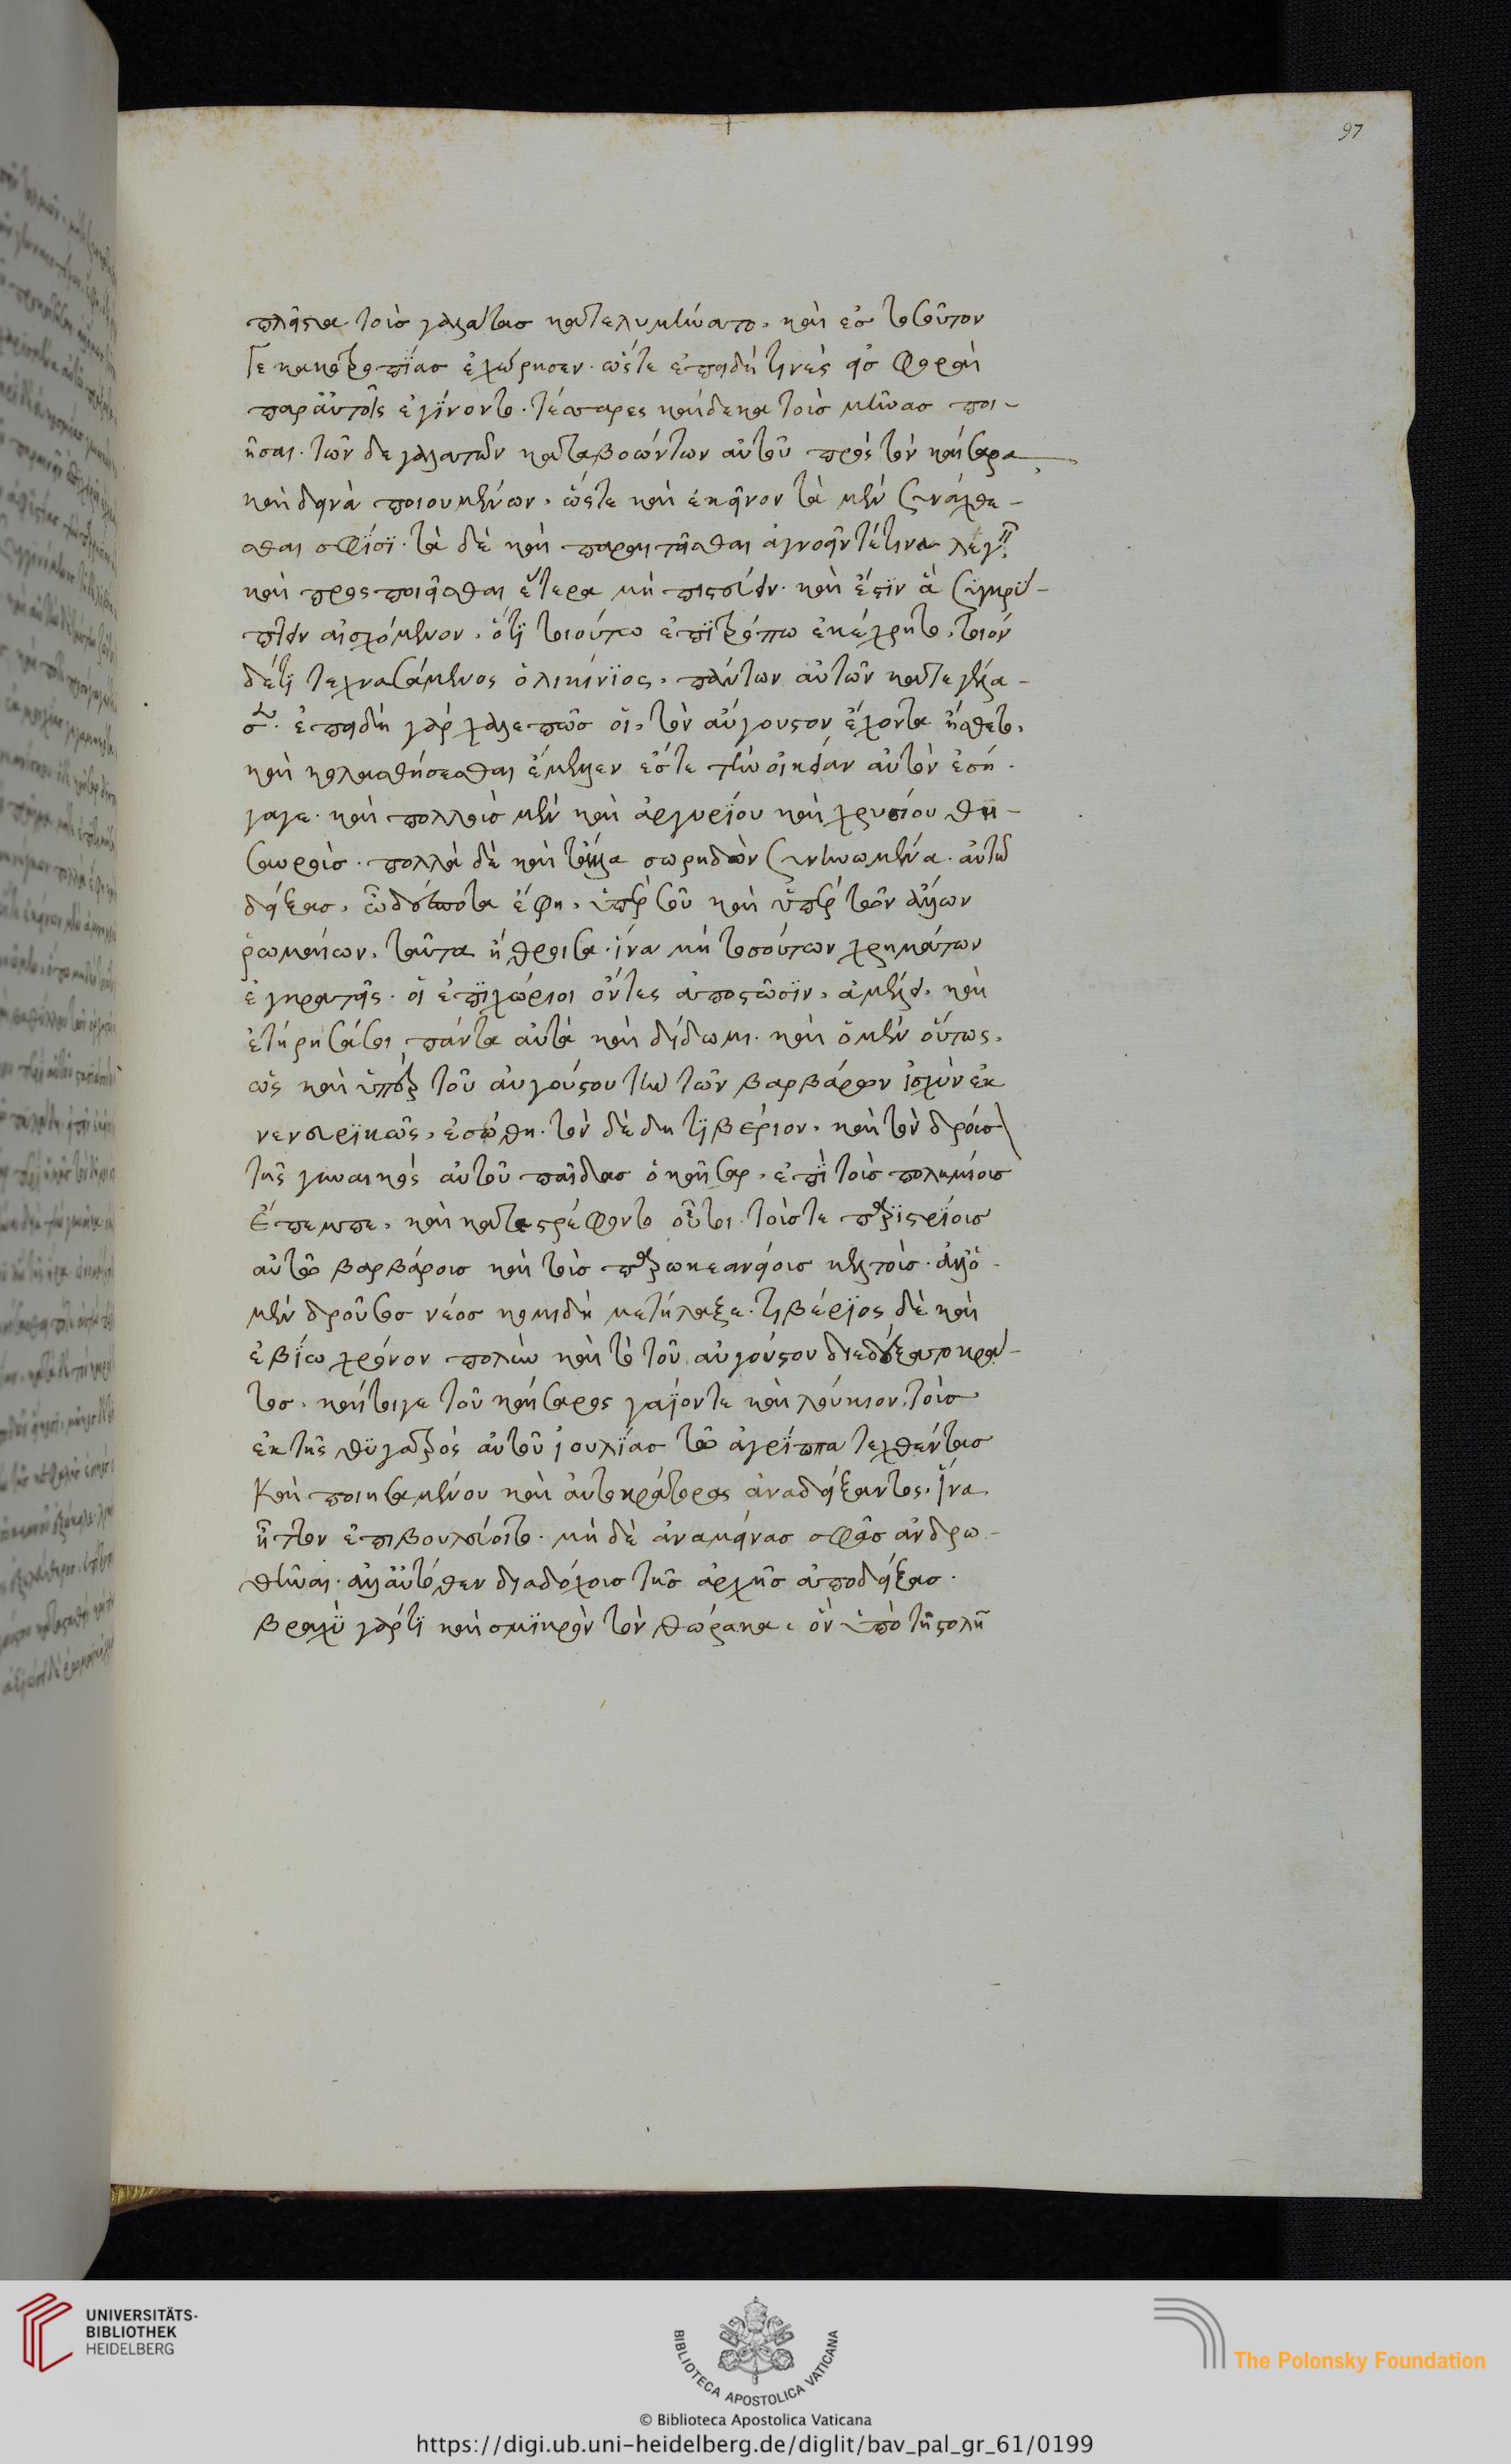 97
πλεῖστα τοὺς γαλάτας κατελυμήνατο. καὶ ἐς τοσοῦτον
γε κακοτροπίας ἐχώρησεν. ὥστε ἐπειδή τινες εἰσφοραὶ
παρ' αὐτοῖς ἐγίνοντο. τέσσαρες καίδεκα τοὺς μῆνας ποι-
ῆσαι. τῶν δε γαλατῶν καταβοώντων αὐτοῦ πρὸς τὸν καίσαρα
καὶ δεινὰ ποιουμένων. ὥστε καὶ ἐκεῖνον τὰ μὲν συνάχθε-
σθαι σφίσι. τὰ δὲ καὶ παραιτεῖσθαι ἀγνοεῖν τέ τινα λέγ
καὶ προσποιεῖσθαι ἕτερα μὴ πιστεύειν. καὶ ἔστιν ἃ συγκρύ-
πτειν αἰσχόμενον. ὅτι τοιούτω ἐπιτρόπω ἐκέχρητο. τοιόν
δέ τι τεχνασάμενος ὁ λικίνιος. πάντων αὐτῶν κατεγέλα-
σεν. ἐπειδὴ γὰρ χαλεπῶς οἱ. τὸν αὔγουστον ἔχοντα ἤσθετο.
καὶ κολασθήσεσθαι ἔμελλεν ἔς τε τὴν οἰκίαν αὐτὸν ἐσή-
γαγε. καὶ πολλοὺς μὲν καὶ ἀργυρίου καὶ χρυσίου θη-
σαυροὺς. πολλὰ δὲ καὶ τἆλλα σωρηδὸν συνηνωμένα. αὐτῶ
δείξας. ὦ δέσποτα ἔφη. ὑπὲρ σοῦ καὶ ὑπὲρ τῶν ἄλλων
ῥωμαίων. ταῦτα ἤθροισα. ἵνα μὴ τοσούτων χρημάτων
ἐγκρατεῖς. οἱ ἐπιχώριοι ὄντες ἀποστῶσιν. ἀμέλει. καὶ
ἐτήρησά σοι πάντα αὐτὰ καὶ δίδωμι. καὶ ὁ μὲν οὕτως.
ὡς καὶ ὑπὲρ τοῦ αὐγούστου τὴν τῶν βαρβάρων ἰσχὺν ἐκ
νενευρικὼς. ἐσώθη. τὸν δὲ δη τιβέριον. καὶ τὸν δροῦσ
τῆς γυναικὸς αὐτοῦ παῖδας ὁ καῖσαρ. ἐπὶ τοὺς πολεμίους
ἔπεμπε. καὶ κατεστρέφοντο οὗτοι. τούς τε παριστρίους
αὐτῶ βαρβάρους καὶ τοὺς παρωκεανείους κελτοὺς. ἀλλ' ὁ
μὲν δροῦσος νέος κομιδῆ μετήλλαξε. τιβέριος δὲ καὶ
ἐβίω χρόνον πολὺν καὶ τὸ τοῦ αὐγούστου διεδέξατο κρά-
τος. καίτοιγε τοῦ καίσαρος γάϊόν τε καὶ λούκιον. τοὺς
ἐκ τῆς θυγατρὸς αὐτοῦ ἰουλίας τῶ ἀγρίππα τεχθέντας
καὶ ποιησαμένου καὶ αὐτοκράτορας ἀναδείξαντος. ἵνα
ἧττον ἐπιβουλεύοιτο. μὴ δὲ ἀναμείνας σφᾶς ἀνδρω-
θῆναι. ἀλλ' αὐτόθεν διαδόχους τῆς ἀρχῆς ἀποδείξας.
βραχὺ γάρ τι καὶ σμικρὸν τὸν θώρακα. ὃν ὑπὸ τῇ στολῇ
UNIVERSITÄTS-
BIBLIOTHEK
HEIDELBERG
BIBLIOTECA APOSTOLICA VATICANA
© Biblioteca Apostolica Vaticana
The Polonsky Foundation
https://digi.ub.uni-heidelberg.de/diglit/bav_pal_gr_61/0199